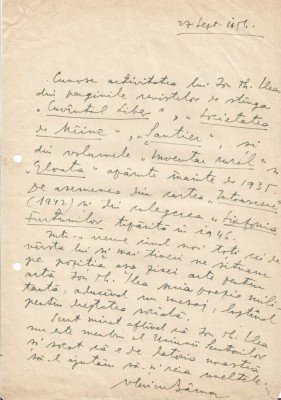 27 Sept. 1956.
Cunosc activitatea lui Ion Th. Ilea
din paginile revistelor de stînga
„Cuvîntul Liber”, „Societatea
de Mâine”, „Șantier”, și
din volumele „Inventar rural” și
„Gloata” apărute înainte de 1935.
De asemenea din cartea, Întoarceri
(1942) și din culegerea „Simfonia
Furtunilor tipărită în 1946.
Într-o vreme cînd mai toți cei de
vîrsta lui și mai tineri ne situam
pe poziția așa zisei arte pentru
artă Ion Th. Ilea scria poezie mili-
tantă, aducînd un mesaj, luptînd
pentru dreptatea socială.
Sunt mirat aflînd că Ion Th. Ilea
nu este membru al Uniunii Scriitorilor
și socot că e de datoria noastră
să-l ajutăm să-și reia uneltele.